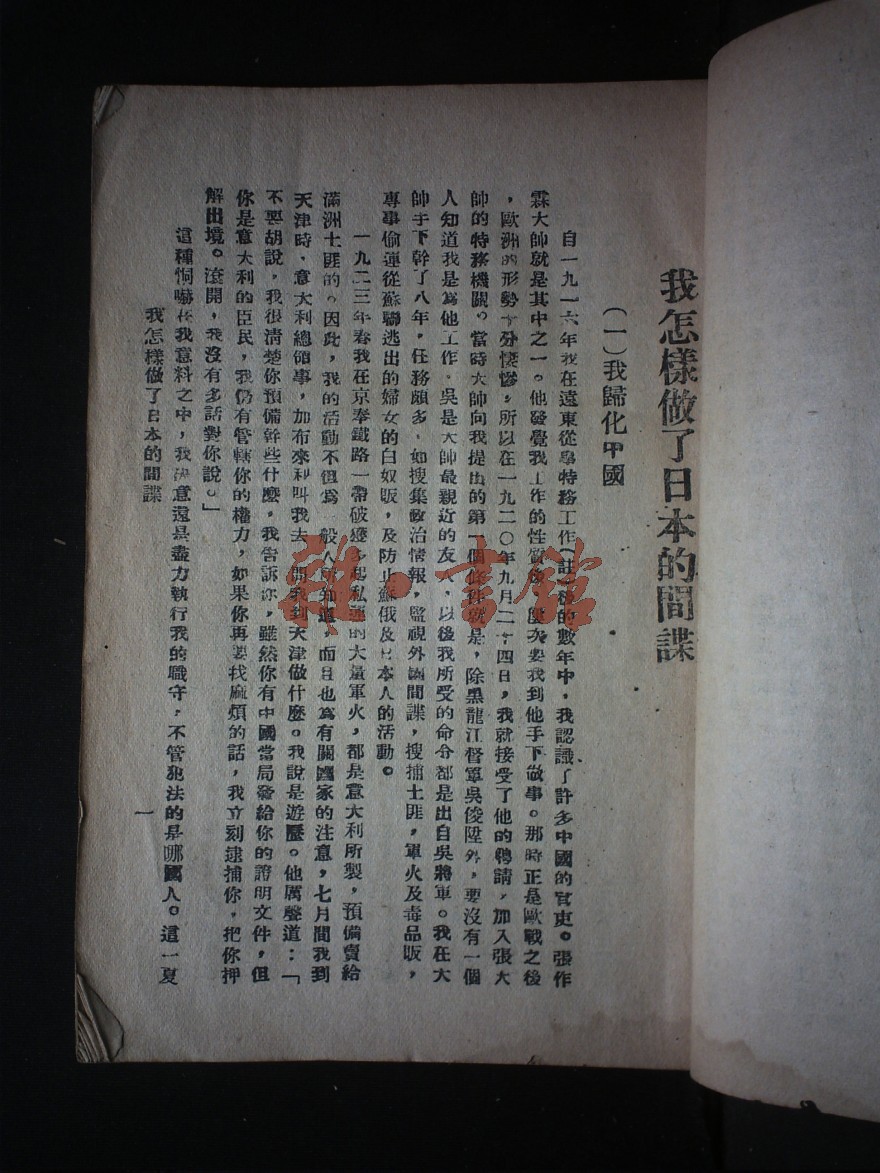 我怎樣做了日本的間諜
(一)我歸化中國
自一九一六年我在遠東從事特務工作(註一)的數年中,我認識了許多中國的官吏。張作
霖大帥就是其中之一。他發覺我工作的性質後,屢次要我到他手下做事。那時正是歐戰之後
,歐洲的形勢十分悽慘,所以在一九二〇年九月二十四日,我就接受了他的聘請,加入張大
帥的特務機關。當時大帥向我提出的第一個條件就是,除黑龍江督軍吳俊陞外,要沒有一個
人知道我是爲他工作。吳是大帥最親近的友人,以後我所受的命令都是出自吳將軍。我在大
帥手下幹了八年,任務頗多,如搜集政治情報,監視外國間諜,搜捕土匪,軍火及毒品販,
專事偷運從蘇聯逃出的婦女的白奴販,及防止蘇俄及日本人的活動。
一九二三年春我在京奉鐵路一帶破獲多起私運的大量軍火,都是意大利所製,預備賣給
滿洲土匪的。因此,我的活動不僅爲一般人所知道,而且也爲有關國家的注意,七月間我到
天津時,意大利總領事,加布來利叫我去,問我到天津做什麼。我說是遊歷。他厲聲道:「
不要胡說,我很清楚你預備幹些什麼,我告訴你,雖然你有中國當局發給你的證明文件,但
你是意大利的臣民,我仍有管轄你的權力,如果你再要找麻煩的話,我立刻逮捕你,把你押
解出境。滾開,我沒有多話對你說。」
這種恫嚇在我意料之中,我決意還是盡力執行我的職守,不管犯法的是哪國人。這一夏
我怎樣做了日本的間諜
一
雜·書館